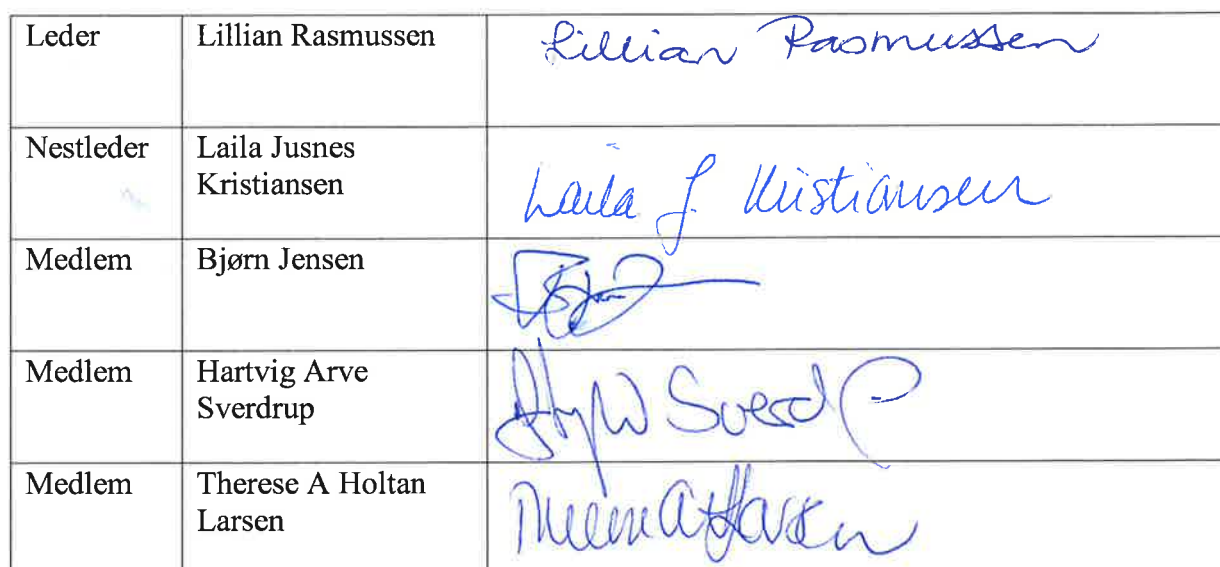 Leder Lillian Rasmussen Lillian Rasmussen
Nestleder Laila Jusnes
Kristiansen Laila J. Kristiansen
Medlem Bjørn Jensen
Medlem Hartvig Arve
Sverdrup
Medlem Therese A Holtan
Larsen